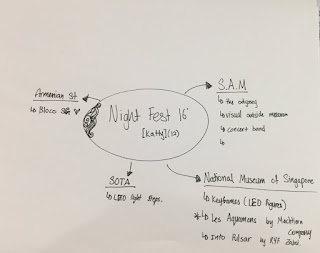 Armenian St
↳ Bloco
Night Fest 16'
[Katty](13)
S.A.M
↳ the odyssey
↳ visual outside museum
↳ concert band
↳
SOTA
↳ LED light steps.
National Museum of Singapore
↳ Keyframes (LED figures)
↳ Les Aquamens by Machtinn Company
↳ Into Pulsar by RYF Zaini.